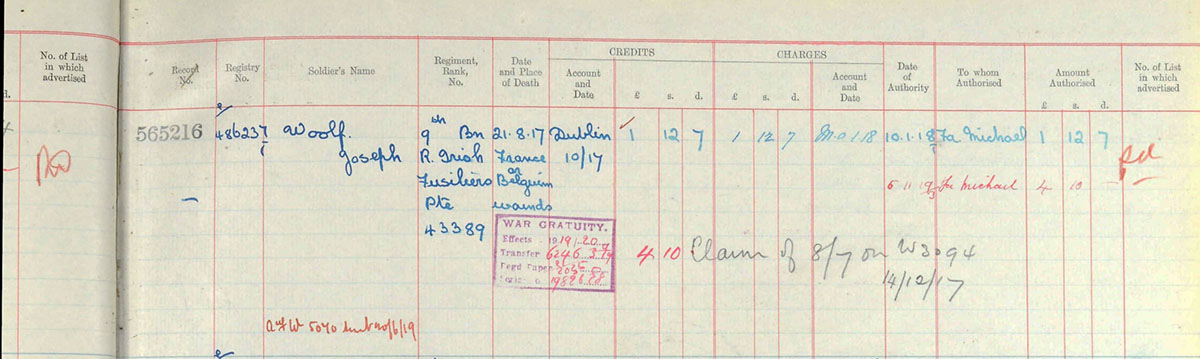 No. of List
in which
advertised
Record
No.
Registry
No.
Soldier's Name
Regiment,
Rank,
No.
Date
and Place
of Death
CREDITS
Account
and
Date
£ s. d.
CHARGES
£ s. d.
Account
and
Date
Date
of
Authority
To whom
Authorised
Amount
Authorised
£ s. d.
No. of List
in which
advertised
d.
565216 486237 Woolf. 9th Bn 21.8.17 Dublin 1 12 7 1 12 7 10.1.18 Fa Michael 1 12 7
Joseph R. Irish France 10/17
Fusiliers or Belguim
Pte wounds
43389
Fa Michael 4 10 —
pd
WAR GRATUITY.
Effects 1919/20
Transfer 6246
Regd Paper
4 10 Claim of 8/7 on W3094
14/12/17
W 5070 /6/19